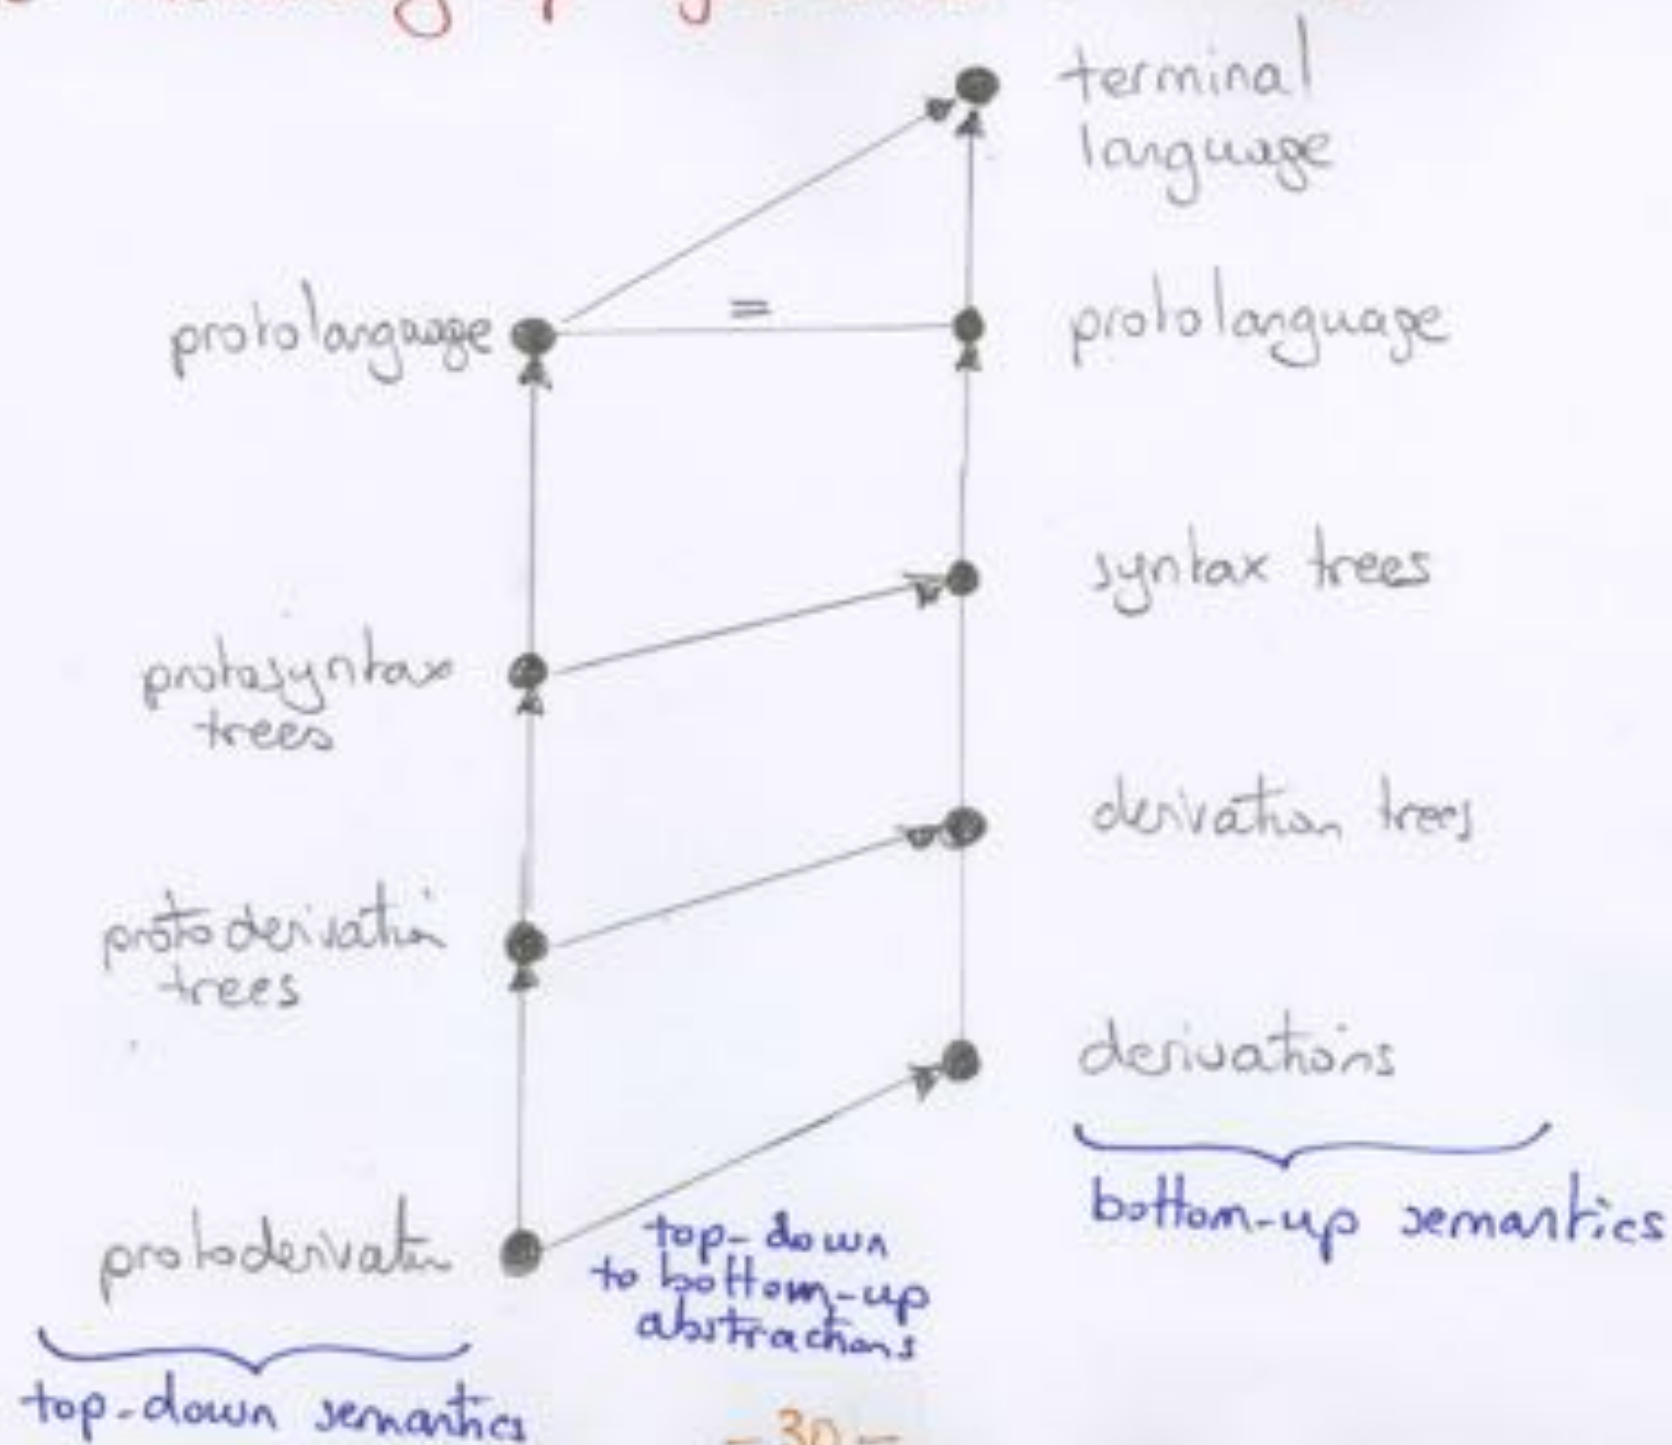 terminal
language
protolanguage
=
protolanguage
syntax trees
protosyntax
trees
derivation trees
protoderivation
trees
derivations
protoderivation
bottom-up semantics
top-down
to bottom-up
abstractions
top-down semantics
- 30 -